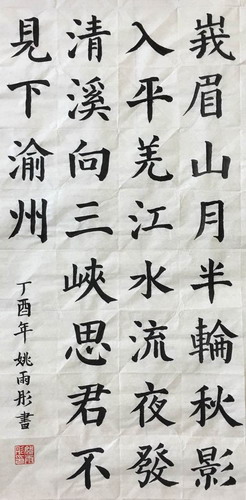 峩眉山月半輪秋影
入平羗江水流夜發
清溪向三峽思君不
見下渝州
丁酉年姚雨彤書